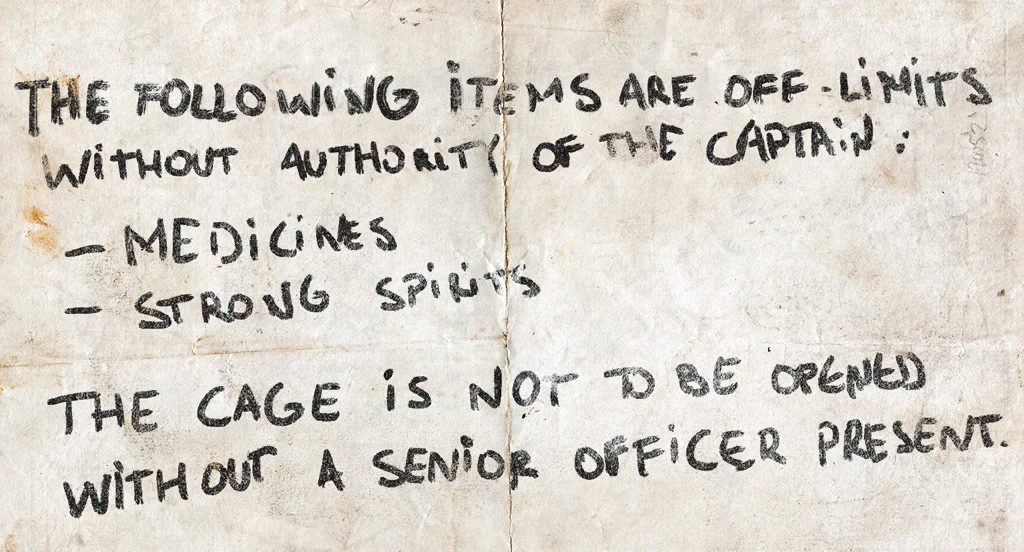 THE FOLLOWING ITEMS ARE OFF-LIMITS
WITHOUT AUTHORITY OF THE CAPTAIN:
- MEDICINES
- STRONG SPIRITS
THE CAGE IS NOT TO BE OPENED
WITHOUT A SENIOR OFFICER PRESENT.